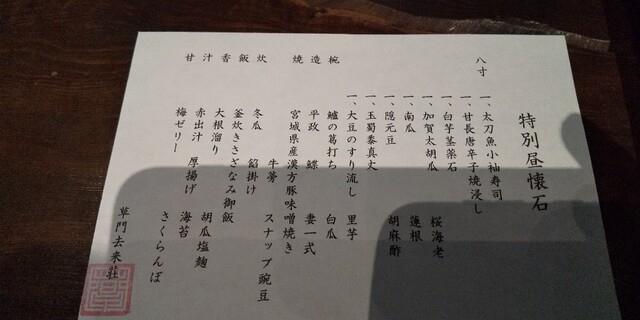 特別昼懐石
八寸
一、太刀魚小袖寿司
一、甘長唐辛子焼浸し 桜海老
一、白芋茎薬石
一、加賀太胡瓜 蓮根
一、南瓜
一、隠元豆 胡麻酢
一、玉蜀黍真丈
一、大豆のすり流し 里芋
椀 鱸の葛打ち 白瓜
造 平政 鰹 妻一式
焼 宮城県産漢方豚味噌焼き
牛蒡 スナップ豌豆
炊 冬瓜 餡掛け
飯 釜炊きさざなみ御飯
香 大根溜り 胡瓜塩麹
汁 赤出汁 厚揚げ 海苔
甘 梅ゼリー さくらんぼ
草門去来荘